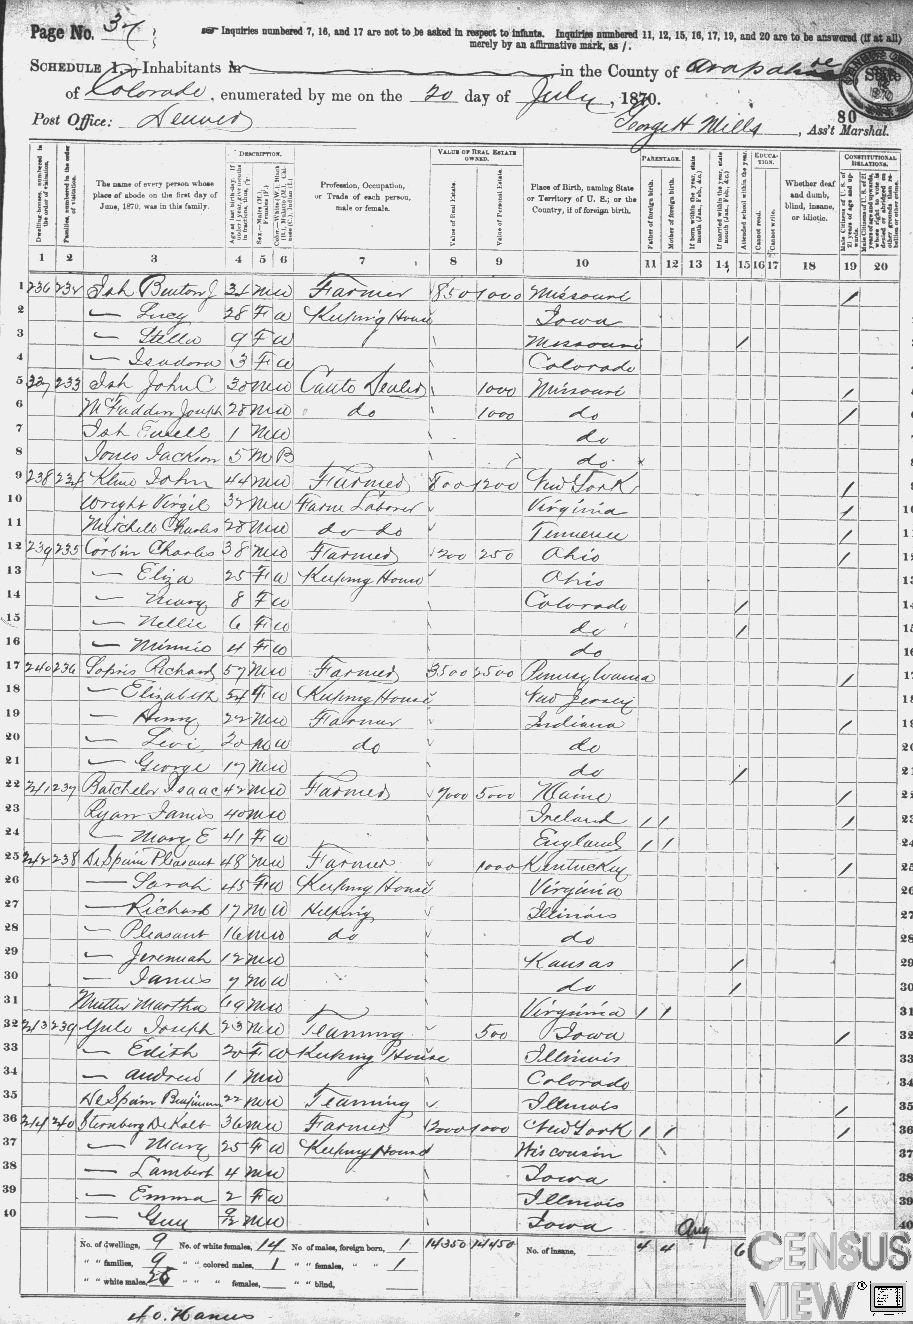 Page No. 34
Inquiries numbered 7, 16, and 17 are not to be asked in respect to infants. Inquiries numbered 11, 12, 15, 16, 17, 19, and 20 are to be answered (if at all)
merely by an affirmative mark, as /.
SCHEDULE 1.—Inhabitants in in the County of Arapahoe, State
of Colorado, enumerated by me on the 20 day of July, 1870.
80
Post Office: Denver George H Mills, Ass't Marshal.
Dwelling-houses, numbered in the order of visitation.
Families, numbered in the order of visitation.
The name of every person whose place of abode on the first day of June, 1870, was in this family.
DESCRIPTION.
Profession, Occupation, or Trade of each person, male or female.
VALUE OF REAL ESTATE OWNED.
Value of Real Estate.
Value of Personal Estate.
Place of Birth, naming State or Territory of U. S.; or the Country, if of foreign birth.
PARENTAGE.
Father of foreign birth.
Mother of foreign birth.
If born within the year, state month (Jan., Feb., &c.)
If married within the year, state month (Jan., Feb., &c.)
Attended school within the year.
EDUCATION.
Cannot read.
Cannot write.
Whether deaf and dumb, blind, insane, or idiotic.
CONSTITUTIONAL RELATIONS.
1 2 3 4 5 6 7 8 9 10 11 12 13 14 15 16 17 18 19 20
1 236 232 Ish Benton J 34 M W Farmer 850 1000 Missouri /
2 — Lucy 28 F W Keeping House Iowa
3 — Stella 9 F W Missouri /
4 — Isadora 3 F W Colorado
5 237 233 Ish John C 30 M W Cattle Dealer 1000 Missouri /
6 McFaddin Joseph 28 M W do 1000 do /
7 Ish 1 M W do
8 Jones Jackson 5 M B do
9 238 234 Kline John 44 M W Farmer 800 1200 New York /
10 Wright Virgil 32 M W Farm Laborer Virginia /
11 Mitchell Charles 28 M W do do Tennessee /
12 239 235 Corbin Charles 38 M W Farmer 1200 250 Ohio /
13 — Eliza 25 F W Keeping House Ohio
14 — Mary 8 F W Colorado /
15 — Nellie 6 F W do /
16 — Minnie 4 F W do
17 240 236 Sopris Richard 57 M W Farmer 3500 2500 Pennsylvania /
18 — Elizabeth 54 F W Keeping House New Jersey
19 — Henry 22 M W Farmer Indiana /
20 — Levi 20 M W do do
21 — George 17 M W do /
22 241 237 Batchelor Isaac 42 M W Farmer 7000 5000 Maine /
23 Ryan James 40 M W Ireland / / /
24 — Mary E 41 F W England / /
25 242 238 DeSpain Pleasant 48 M W Farmer 1000 Kentucky /
26 — Sarah 45 F W Keeping House Virginia
27 — Richard 17 M W Helping Illinois
28 — Pleasant 16 M W do do
29 — Jeremiah 12 M W Kansas /
30 — James 9 M W do /
31 Martha 69 M W Virginia / /
32 243 239 Yule Joseph 23 M W Teaming 500 Iowa /
33 — Edith 20 F W Keeping House Illinois
34 — Andrew 1 M W Colorado
35 DeSpain Benjamin 22 M W Teaming Illinois /
36 244 240 Sternberg DeKalb 36 M W Farmer 2000 1000 New York / / /
37 — Mary 25 F W Keeping House Wisconsin
38 — Lambert 4 M W Iowa
39 — Emma 2 F W Illinois
40 — Guy 9/12 M W Iowa Aug
No. of dwellings, 9 No. of white females, 14 No. of males, foreign born, 1 14350 14450 No. of insane, 4 4 6
" " families, 9 " " colored males, 1 " " females, " " 1
" " white males, 25 " " " females, " " blind,
40. Names
CENSUS
VIEW®